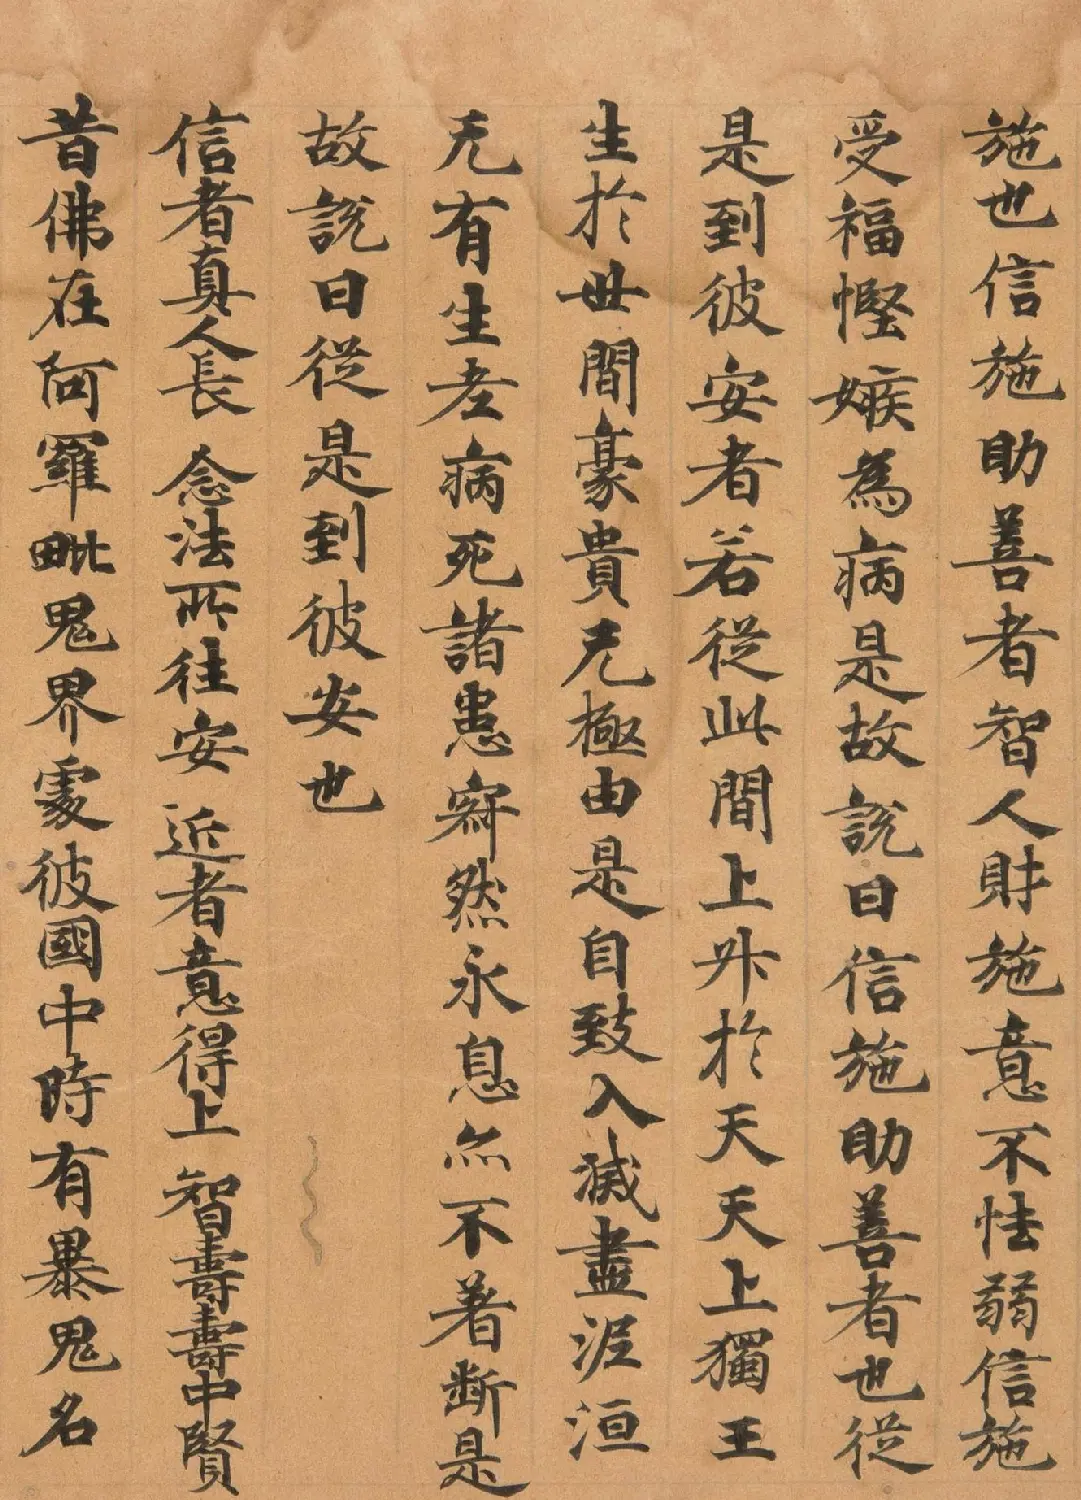 施也信施助善者智人財施意不怯弱信施
受福慳嫉為病是故說曰信施助善者也從
是到彼安者若從此間上升於天天上獨王
生於世間豪貴无極由是自致入滅盡泥洹
无有生老病死諸患寂然永息亦不著斷是
故說曰從是到彼安也
信者真人長 念法所往安 近者意得上 智壽壽中賢
昔佛在阿羅毗鬼界處彼國中時有暴鬼名